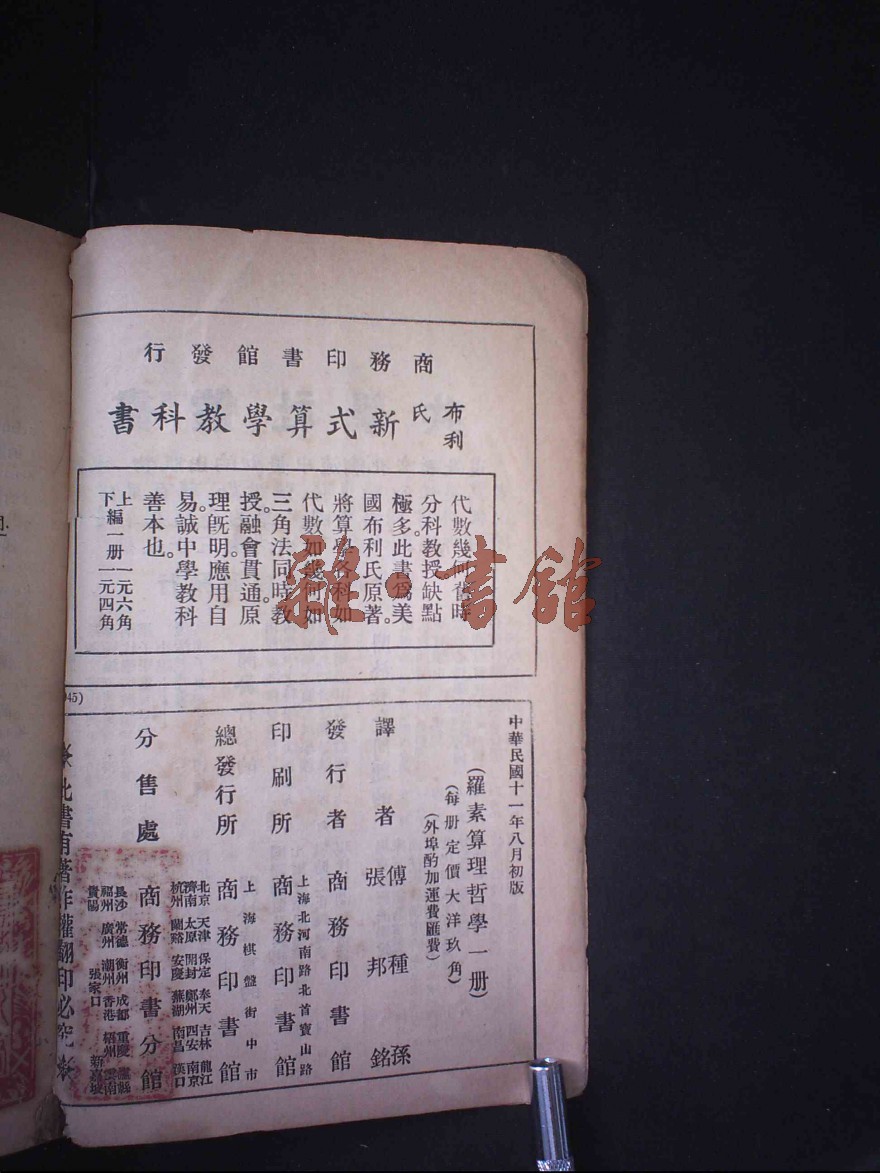 商務印書館發行
布利氏
新式算學教科書
代數幾何舊時
分科教授缺點
極多。此書爲美
國布利氏原著。
將算學各科如
代數如幾何如
三角法同時教
授。融會貫通。原
理既明。應用自
易。誠中學教科
善本也。
上編一册一元六角
下編一册一元四角
45)
中華民國十一年八月初版
(羅素算理哲學一册)
(每册定價大洋玖角)
(外埠酌加運費匯費)
譯者 傅種孫
張邦銘
發行者 商務印書館
印刷所 上海北河南路北首寶山路
商務印書館
總發行所 上海棋盤街中市
商務印書館
分售處 北京 天津 保定 奉天 吉林 龍江
濟南 太原 開封 鄭州 西安 南京
杭州 蘭谿 安慶 蕪湖 南昌 漢口
商務印書分館
長沙 常德 衡州 成都 重慶 瀘縣
福州 廣州 潮州 香港 梧州 雲南
貴陽 張家口 新嘉坡
此書有著作權翻印必究
雜·書館